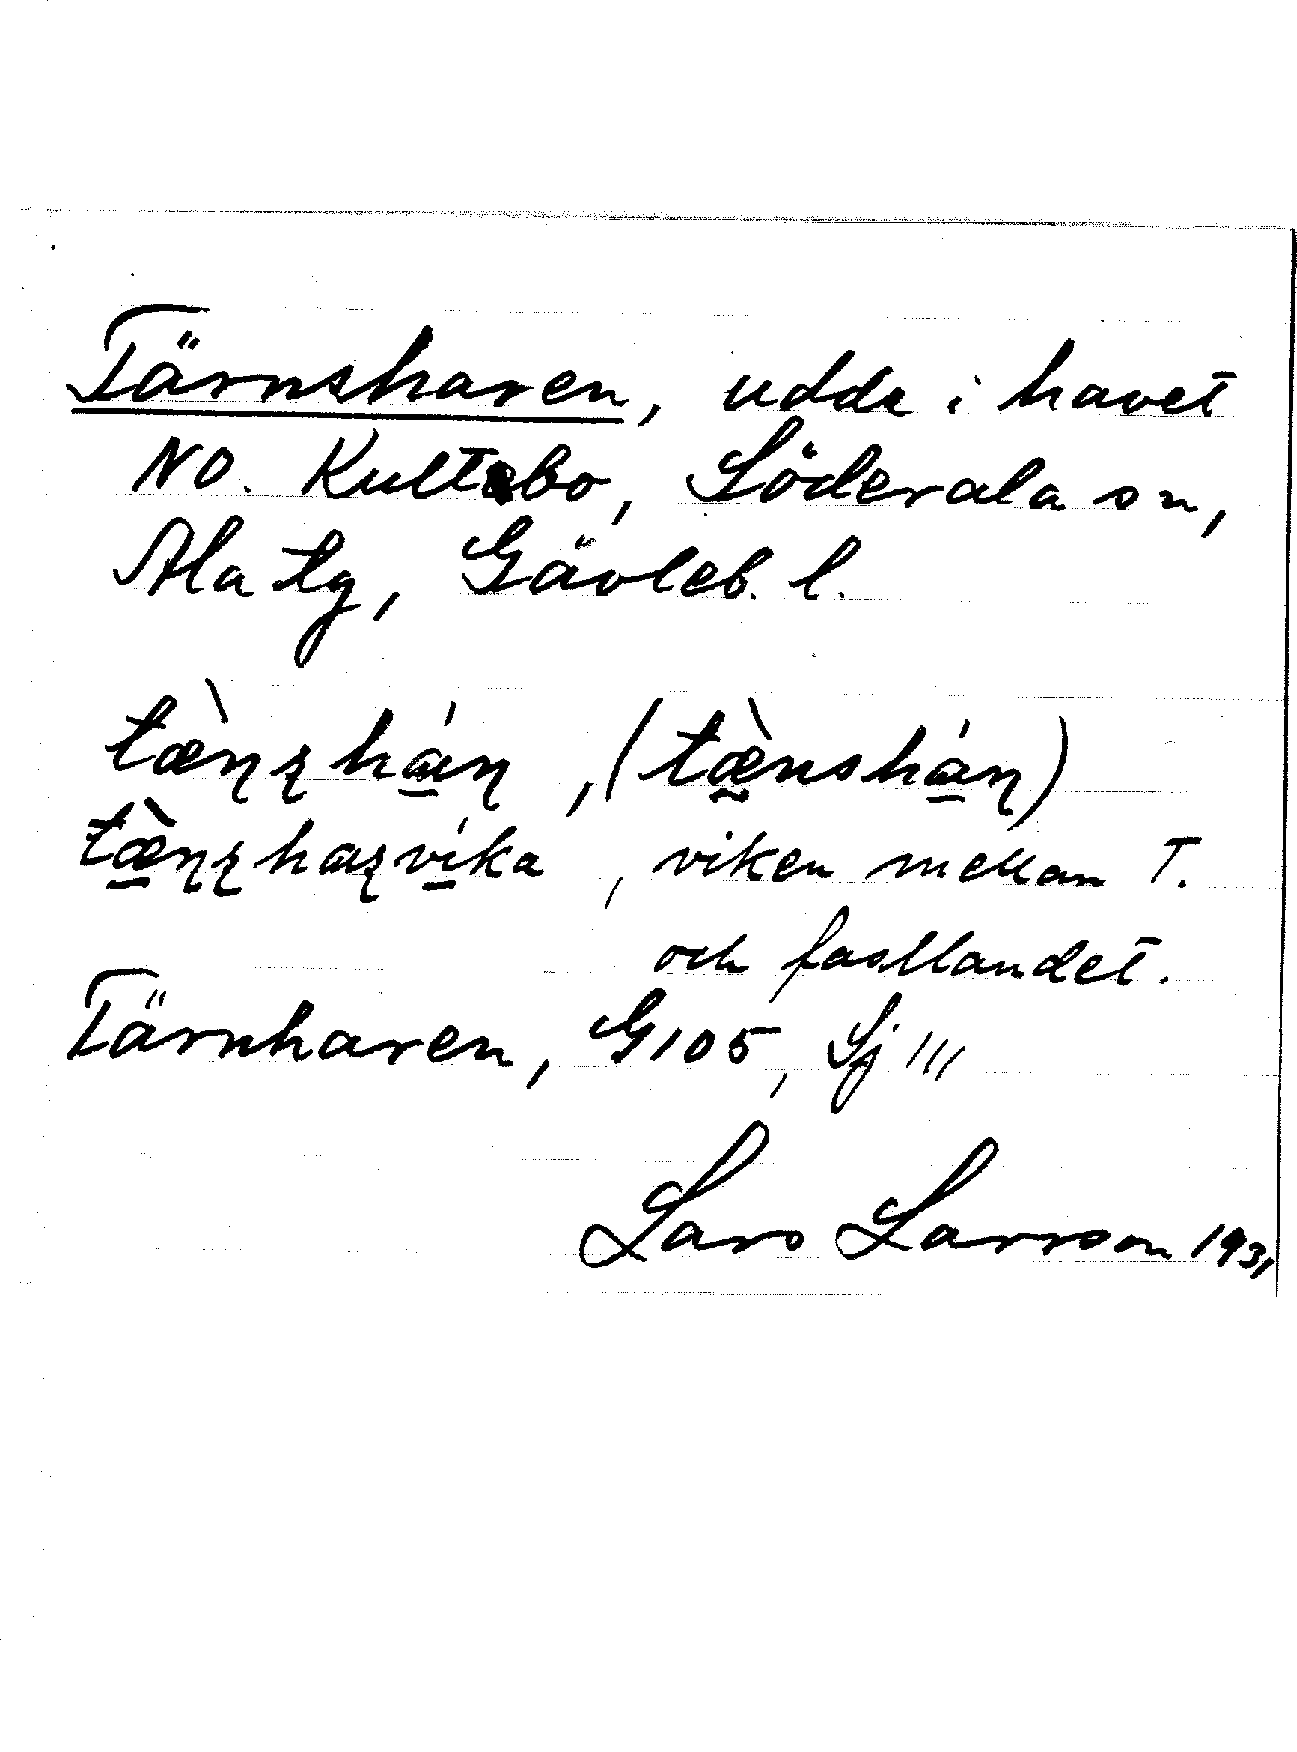 Tärnsharen, udde i havet
NO. Kultebo, Söderala sn,
Ala tg, Gävleb. l.
tæ̀ɳʂhá̱ɳ, (tæ̰̀nshá̱ɳ)
tæ̱̀ɳʂhaʂví̱ka, viken mellan T.
och fastlandet.
Tärnharen, G105, Sj III
Lars Larsson 1931